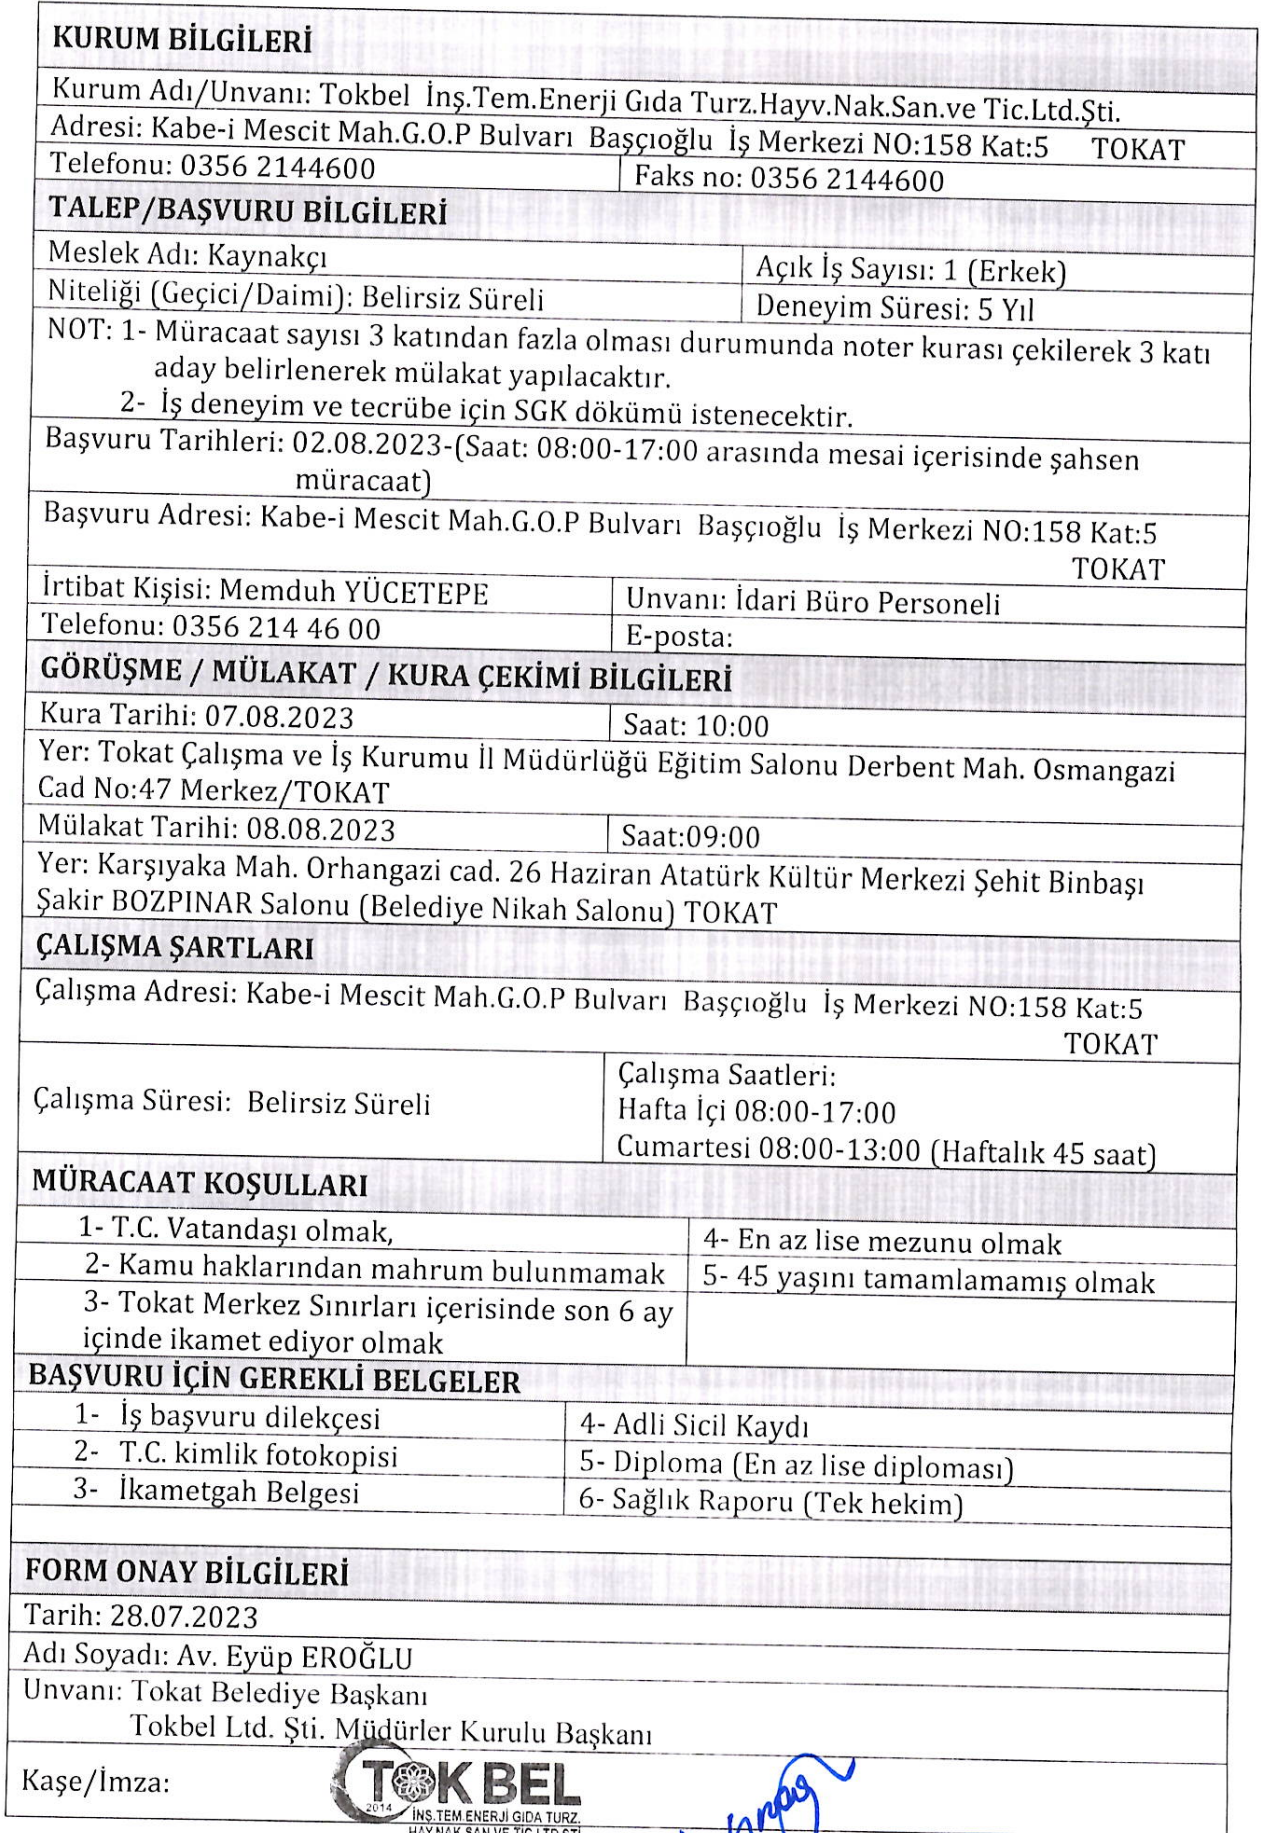 KURUM BİLGİLERİ
Kurum Adı/Unvanı: Tokbel İnş.Tem.Enerji Gıda Turz.Hayv.Nak.San.ve Tic.Ltd.Şti.
Adresi: Kabe-i Mescit Mah.G.O.P Bulvarı Başçıoğlu İş Merkezi NO:158 Kat:5 TOKAT
Telefonu: 0356 2144600 Faks no: 0356 2144600
TALEP/BAŞVURU BİLGİLERİ
Meslek Adı: Kaynakçı Açık İş Sayısı: 1 (Erkek)
Niteliği (Geçici/Daimi): Belirsiz Süreli Deneyim Süresi: 5 Yıl
NOT: 1- Müracaat sayısı 3 katından fazla olması durumunda noter kurası çekilerek 3 katı
aday belirlenerek mülakat yapılacaktır.
2- İş deneyim ve tecrübe için SGK dökümü istenecektir.
Başvuru Tarihleri: 02.08.2023-(Saat: 08:00-17:00 arasında mesai içerisinde şahsen
müracaat)
Başvuru Adresi: Kabe-i Mescit Mah.G.O.P Bulvarı Başçıoğlu İş Merkezi NO:158 Kat:5
TOKAT
İrtibat Kişisi: Memduh YÜCETEPE Unvanı: İdari Büro Personeli
Telefonu: 0356 214 46 00 E-posta:
GÖRÜŞME / MÜLAKAT / KURA ÇEKİMİ BİLGİLERİ
Kura Tarihi: 07.08.2023 Saat: 10:00
Yer: Tokat Çalışma ve İş Kurumu İl Müdürlüğü Eğitim Salonu Derbent Mah. Osmangazi
Cad No:47 Merkez/TOKAT
Mülakat Tarihi: 08.08.2023 Saat:09:00
Yer: Karşıyaka Mah. Orhangazi cad. 26 Haziran Atatürk Kültür Merkezi Şehit Binbaşı
Şakir BOZPINAR Salonu (Belediye Nikah Salonu) TOKAT
ÇALIŞMA ŞARTLARI
Çalışma Adresi: Kabe-i Mescit Mah.G.O.P Bulvarı Başçıoğlu İş Merkezi NO:158 Kat:5
TOKAT
Çalışma Süresi: Belirsiz Süreli
Çalışma Saatleri:
Hafta İçi 08:00-17:00
Cumartesi 08:00-13:00 (Haftalık 45 saat)
MÜRACAAT KOŞULLARI
1- T.C. Vatandaşı olmak, 4- En az lise mezunu olmak
2- Kamu haklarından mahrum bulunmamak 5- 45 yaşını tamamlamamış olmak
3- Tokat Merkez Sınırları içerisinde son 6 ay
içinde ikamet ediyor olmak
BAŞVURU İÇİN GEREKLİ BELGELER
1- İş başvuru dilekçesi 4- Adli Sicil Kaydı
2- T.C. kimlik fotokopisi 5- Diploma (En az lise diploması)
3- İkametgah Belgesi 6- Sağlık Raporu (Tek hekim)
FORM ONAY BİLGİLERİ
Tarih: 28.07.2023
Adı Soyadı: Av. Eyüp EROĞLU
Unvanı: Tokat Belediye Başkanı
Tokbel Ltd. Şti. Müdürler Kurulu Başkanı
Kaşe/İmza:
TOKBEL
2014
İNŞ.TEM.ENERJİ GIDA TURZ.
HAY.NAK.SAN.VE TİC.LTD.ŞTİ.